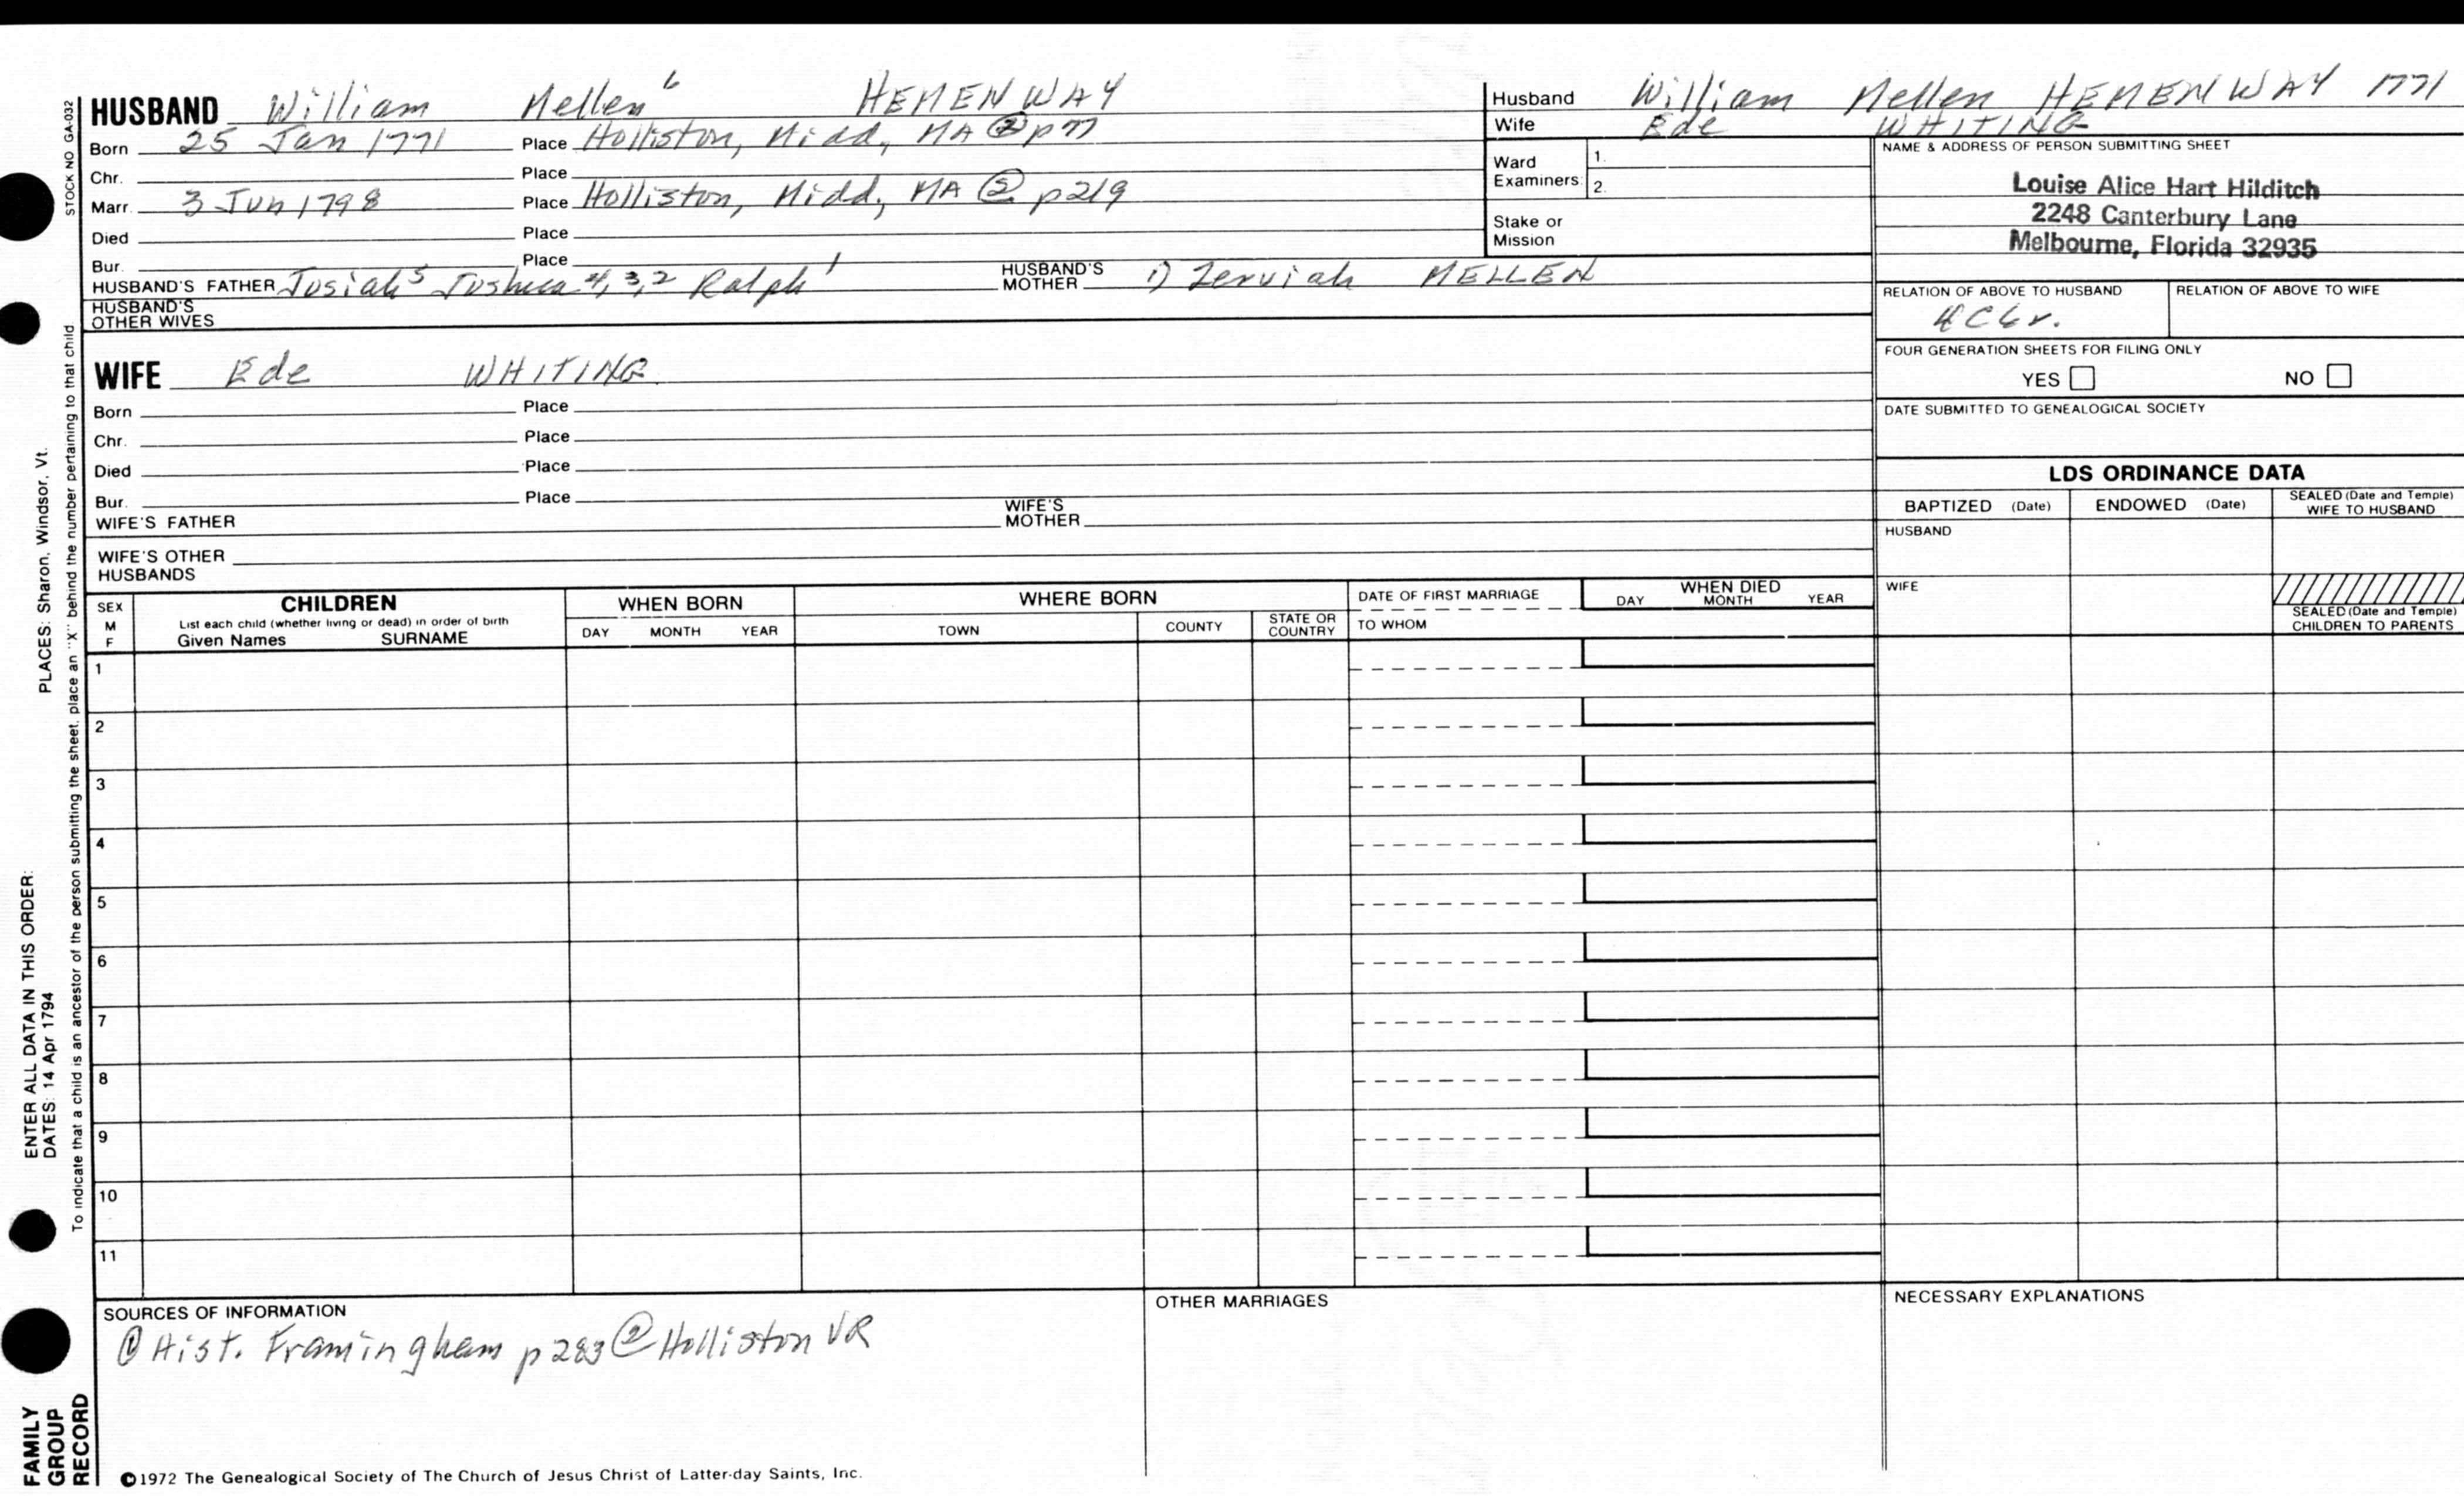 HUSBAND William Mellen⁶ HEMENWAY
Born 25 Jan 1771 Place Holliston, Midd, MA ② p77
Chr. Place
Marr. 3 Jun 1798 Place Holliston, Midd, MA ② p219
Died Place
Bur. Place
HUSBAND'S FATHER Josiah⁵ Joshua⁴,³,² Ralph¹ HUSBAND'S MOTHER 1) Zerviah MELLEN
HUSBAND'S OTHER WIVES
WIFE Ede WHITING
Born Place
Chr. Place
Died Place
Bur. Place
WIFE'S FATHER WIFE'S MOTHER
WIFE'S OTHER HUSBANDS
Husband William Mellen HEMENWAY 1771
Wife Ede WHITING
Ward Examiners: 1. 2.
Stake or Mission
NAME & ADDRESS OF PERSON SUBMITTING SHEET
Louise Alice Hart Hilditch
2248 Canterbury Lane
Melbourne, Florida 32935
RELATION OF ABOVE TO HUSBAND RELATION OF ABOVE TO WIFE
4C6r.
FOUR GENERATION SHEETS FOR FILING ONLY
YES NO
DATE SUBMITTED TO GENEALOGICAL SOCIETY
LDS ORDINANCE DATA
BAPTIZED (Date) ENDOWED (Date) SEALED (Date and Temple) WIFE TO HUSBAND
HUSBAND
WIFE
SEALED (Date and Temple) CHILDREN TO PARENTS
SEX M F
CHILDREN
List each child (whether living or dead) in order of birth
Given Names SURNAME
WHEN BORN
DAY MONTH YEAR
WHERE BORN
TOWN COUNTY STATE OR COUNTRY
DATE OF FIRST MARRIAGE
TO WHOM
WHEN DIED
DAY MONTH YEAR
1
2
3
4
5
6
7
8
9
10
11
SOURCES OF INFORMATION
① Hist. Framingham p283 ② Holliston VR
OTHER MARRIAGES
NECESSARY EXPLANATIONS
©1972 The Genealogical Society of The Church of Jesus Christ of Latter-day Saints, Inc.
STOCK NO GA-032
To indicate that a child is an ancestor of the person submitting the sheet, place an "X" behind the number pertaining to that child
ENTER ALL DATA IN THIS ORDER: PLACES: Sharon, Windsor, Vt.
DATES: 14 Apr 1794
FAMILY
GROUP
RECORD